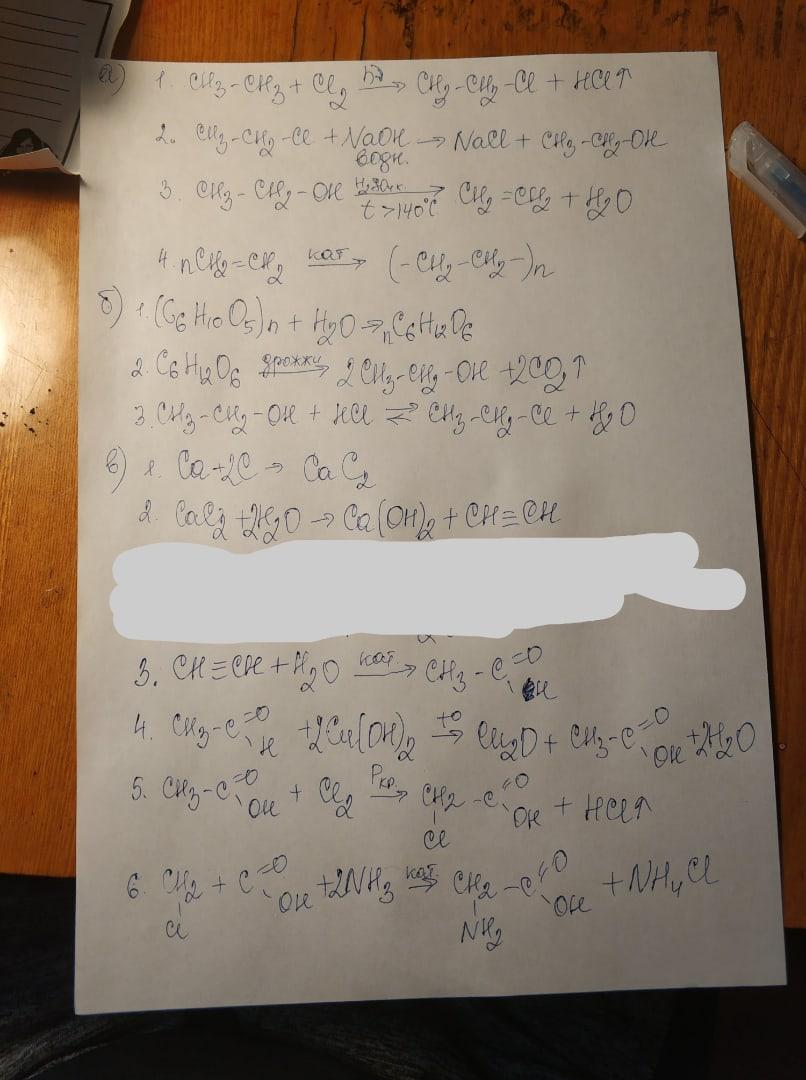 а) 1. CH3-CH3 + Cl2 hν→ CH3-CH2-Cl + HCl↑
2. CH3-CH2-Cl + NaOH водн. → NaCl + CH3-CH2-OH
3. CH3-CH2-OH H2SO4к. t>140°C → CH2=CH2 + H2O
4. nCH2=CH2 кат → (-CH2-CH2-)n
б) 1. (C6H10O5)n + H2O → nC6H12O6
2. C6H12O6 дрожжи → 2CH3-CH2-OH + 2CO2↑
3. CH3-CH2-OH + HCl ⇌ CH3-CH2-Cl + H2O
в) 1. Ca + 2C → CaC2
2. CaC2 + 2H2O → Ca(OH)2 + CH≡CH
3. CH≡CH + H2O кат. → CH3-C=O \ H
4. CH3-C=O \ H + 2Cu(OH)2 t° → Cu2O + CH3-C=O \ OH + 2H2O
5. CH3-C=O \ OH + Cl2 Pкр. → CH2-C=O \ OH + HCl↑
Cl
6. CH2 + C=O \ OH + 2NH3 кат. → CH2-C=O \ OH + NH4Cl
Cl NH2